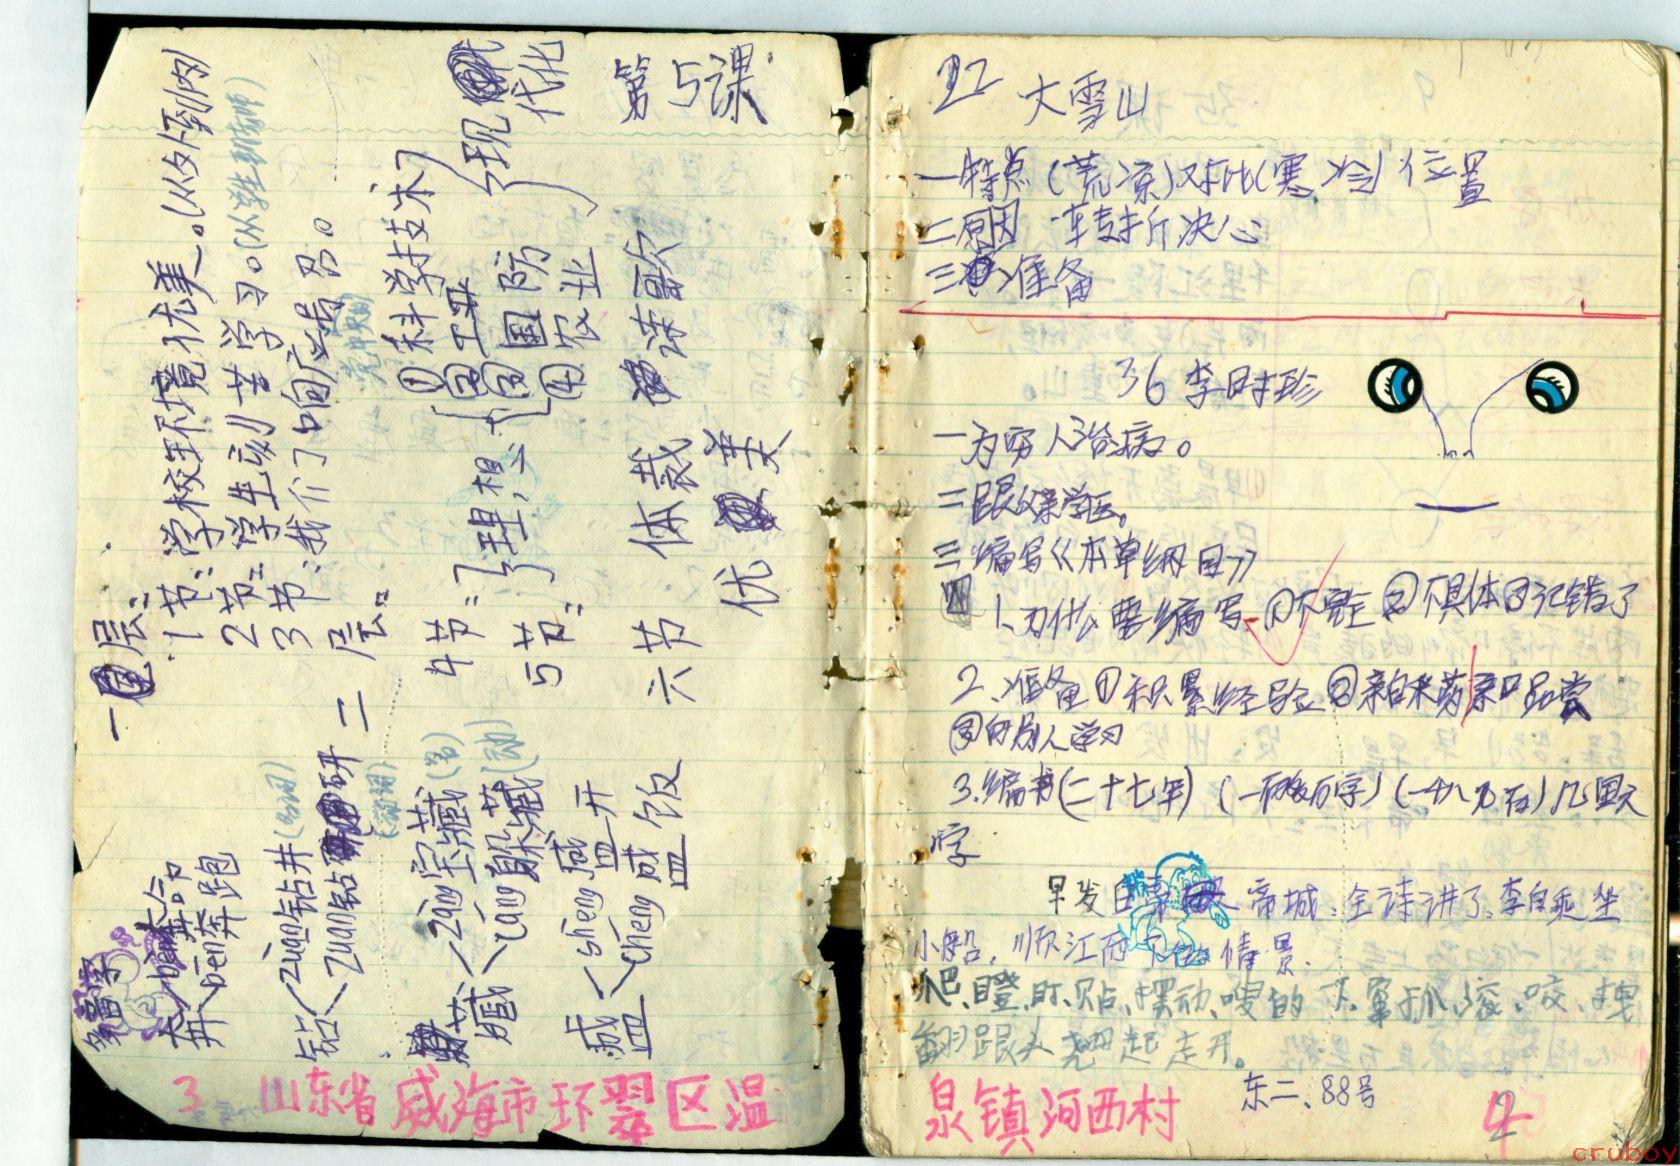 第5课
一层：
1节：学校环境优美。(从外到内)
2节：学生刻苦学习。(从学生到老师)
3节：我们响应号召。
党中央的
二层：
4节：理想
①科学技术
②工业
③国防
④农业
现代化
5节：
六节 体裁 诗歌
优美
多音字
奔 bèn 奔跑
钻 zuàn 钻井(名词)
zuān 钻研(动词)
藏 zàng 宝藏(名)
cáng 躲藏(动)
盛 shèng 盛开
chéng 盛饭
3 山东省威海市环翠区温
22 大雪山
一特点(荒凉)对比(寒冷)位置
二原因 转折 决心
三准备
36 李时珍
一为穷人治病。
二跟父亲学医。
三编写《本草纲目》
1、为什么要编写 ①不完全 ②不具体 ③记错了
2、准备 ①积累经验 ②亲自采药亲口品尝
③向别人学习
3.编书(二十七年)(一百多万字)
字
早发白帝城：全诗讲了、李白乘坐
小船，顺江而下的情景.
爬、瞪、盯、贴、摆动、嗖的一下、抓、滚、咬、拽
翻跟头 翘起 走开。
东二、88号
泉镇河西村
2
cruboy